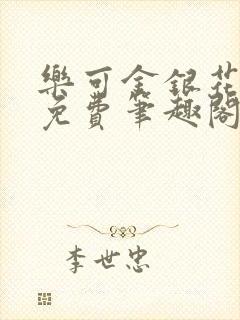 樂可金銀花
免費筆趣閣
李世忠